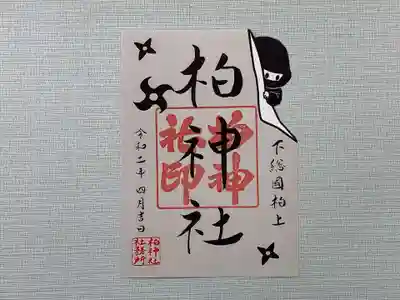 下総國柏上
柏神社
柏神社印
令和二年四月吉日
柏神社
社務所